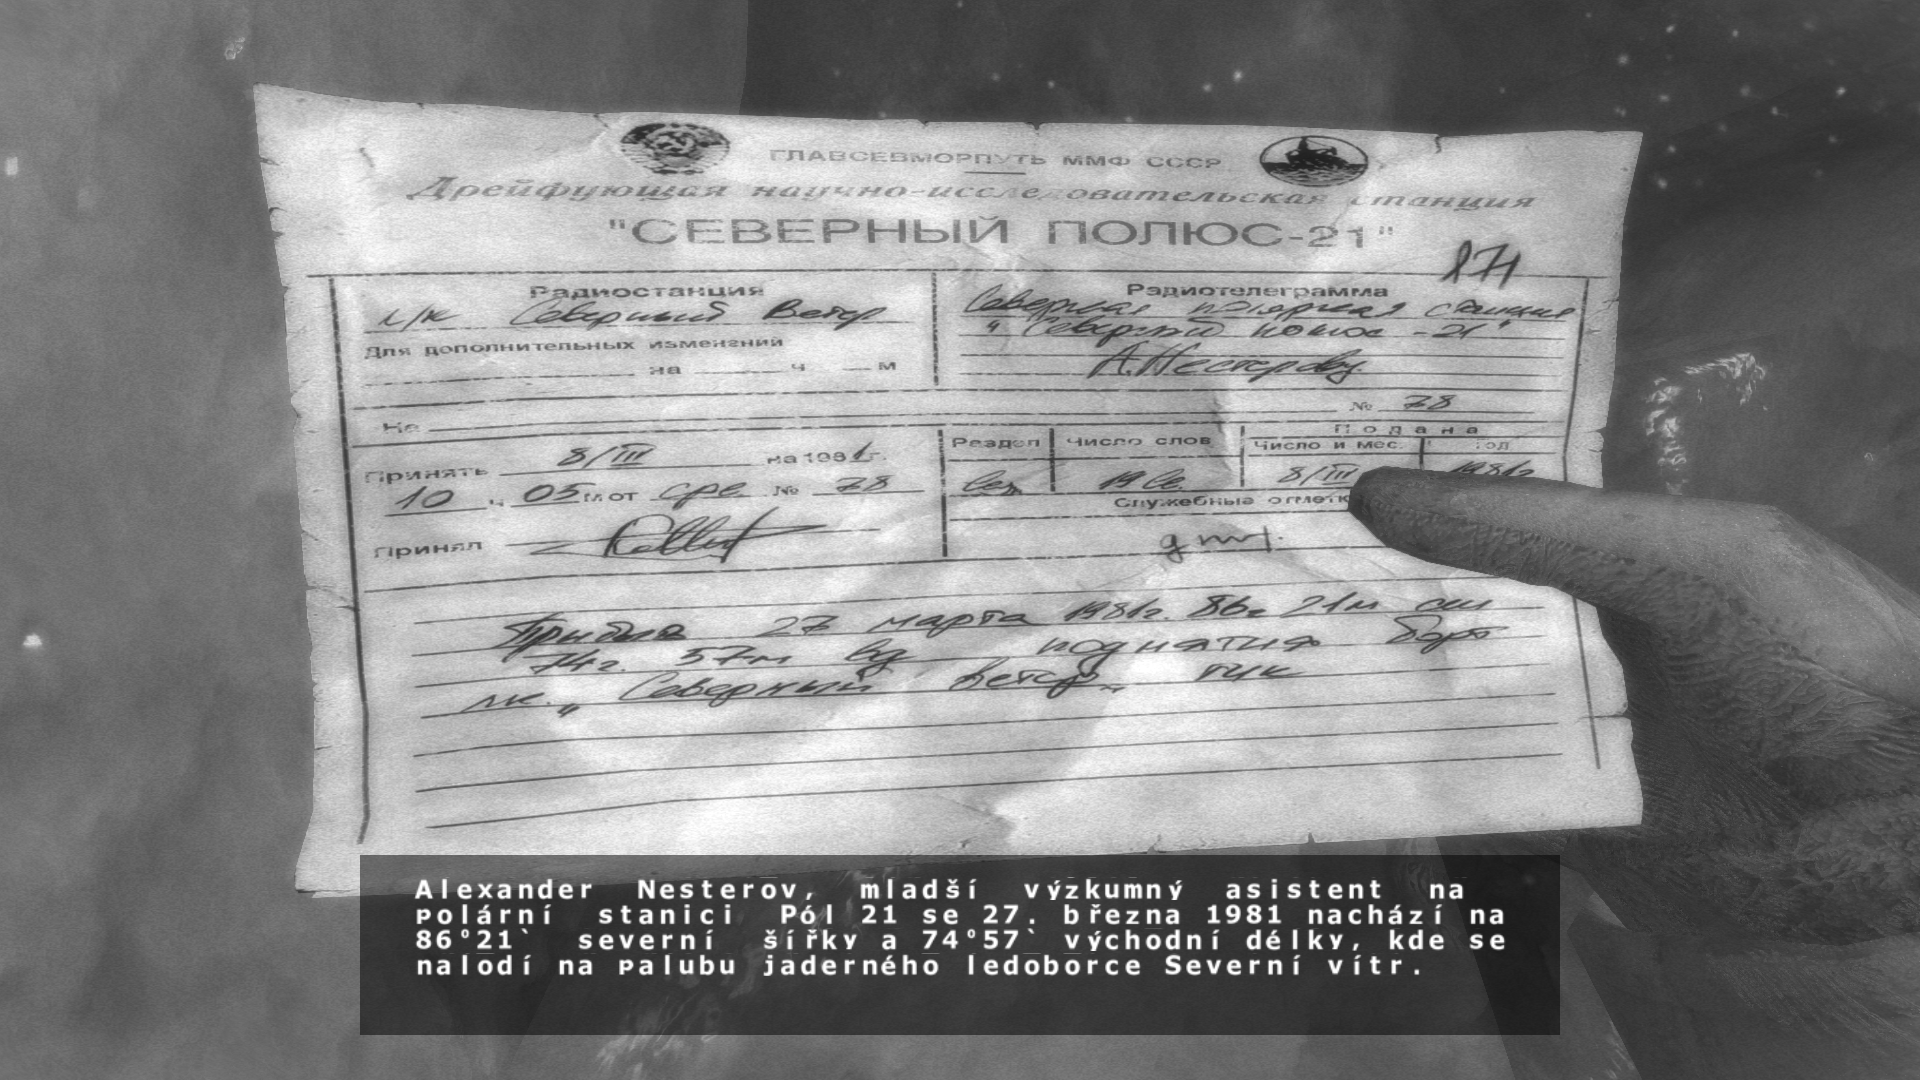 ГЛАВСЕВМОРПУТЬ ММФ СССР
Дрейфующая научно-исследовательская станция
"СЕВЕРНЫЙ ПОЛЮС-21"
Радиостанция
л/к Северный Ветер
Для дополнительных изменений
на ч м
Радиотелеграмма
Северная полярная станция
"Северный полюс -21"
А.Нестерову.
№ 78
Не
Принять 8/III на 1981г.
10 ч 05 м от сре № 78
Принял
Раздел Число слов
Подана
Число и мес. год
19 8/III 1981г
Служебные отметк
Прибыть 27 марта 1981г. 86г 21м сш
74г. 57м вд поднятия борт
лк. „Северный ветер" тчк
Alexander Nesterov, mladší výzkumný asistent na
polární stanici Pól 21 se 27. března 1981 nachází na
86°21` severní šířky a 74°57` východní délky, kde se
nalodí na palubu jaderného ledoborce Severní vítr.